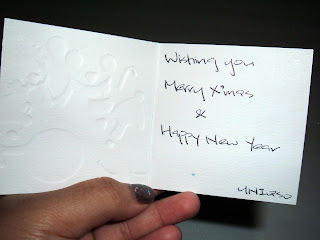 Wishing you
Merry X'mas
&
Happy New Year